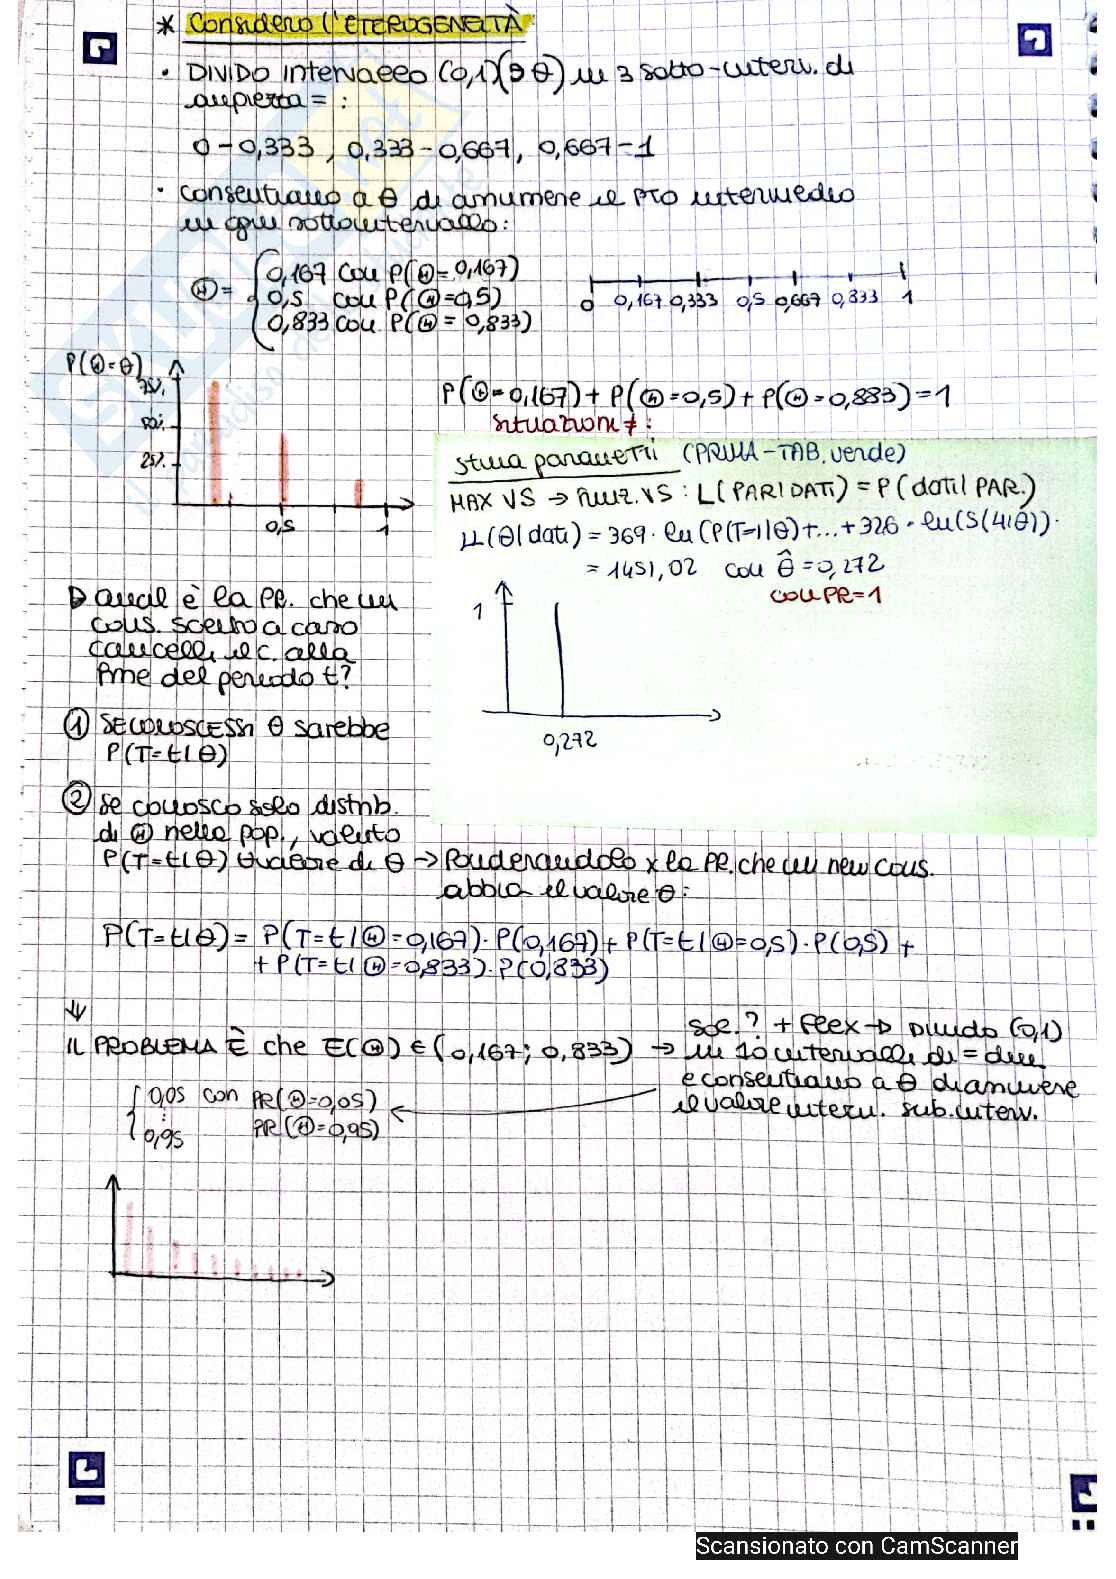 * Considero l'ETEROGENEITÀ:
• DIVIDO intervallo (0,1)(∋ θ) in 3 sotto-interv. di
ampiezza = :
0 - 0,333 , 0,333 - 0,667, 0,667 - 1
• consentiamo a θ di assumere il pto intermedio
in ogni sottointervallo:
Ⓗ = { 0,167 con P(Ⓗ = 0,167)
0,5 con P(Ⓗ = 0,5)
0,833 con P(Ⓗ = 0,833)
0 0,167 0,333 0,5 0,667 0,833 1
P(Ⓗ = θ)
75%
50%
25%
0,5 1
P(Ⓗ = 0,167) + P(Ⓗ = 0,5) + P(Ⓗ = 0,883) = 1
situazioni ≠ :
stima parametri (PRIMA - TAB. verde)
MAX VS → funz. VS : L(PAR|DATI) = P(dati| PAR.)
LL(θ|dati) = 369 · ln(P(T=1|θ) + ... + 326 · ln(S(4|θ)).
= 1451,02 con θ̂ = 0,272
con PR = 1
1
0,272
▷ qual è la PR. che un
cons. scelto a caso
cancelli il c. alla
fine del periodo t?
① SE CONOSCESSI θ sarebbe
P(T=t|θ)
② Se conosco solo distrib.
di Ⓗ nella pop., valuto
P(T=t|θ) ∀ valore di θ → Ponderandolo x la PR. che un new cons.
abbia il valore θ :
P(T=t|θ) = P(T=t|Ⓗ=0,167)·P(0,167) + P(T=t|Ⓗ=0,5)·P(0,5) +
+ P(T=t|Ⓗ=0,833)·P(0,833)
⇓
IL PROBLEMA È che E(Ⓗ) ∈ (0,167; 0,833) →
sol. ? + flex → Divido (0,1)
in 10 intervalli di = dim
e consentiamo a θ di assumere
il valore interm. sub. interv.
{ 0,05 con PR(Ⓗ=0,05)
⋮
0,95 PR(Ⓗ=0,95)
Scansionato con CamScanner